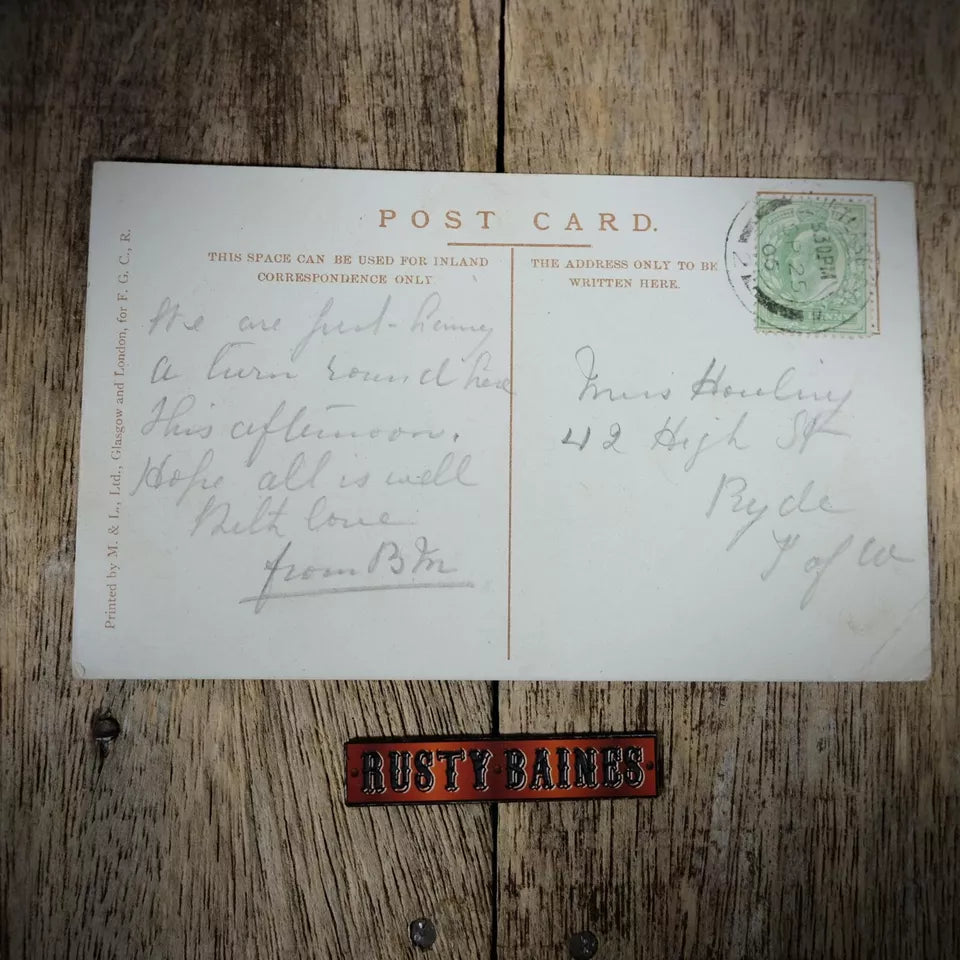 POST CARD.
THIS SPACE CAN BE USED FOR INLAND
CORRESPONDENCE ONLY
THE ADDRESS ONLY TO BE
WRITTEN HERE.
Printed by M. & L., Ltd., Glasgow and London, for F. G. C., R.
We are just having
a turn round here
This afternoon.
Hope all is well
With love
from B M
Miss
42 High St
Ryde
I of W
30PM
25
2
RUSTY BAINES